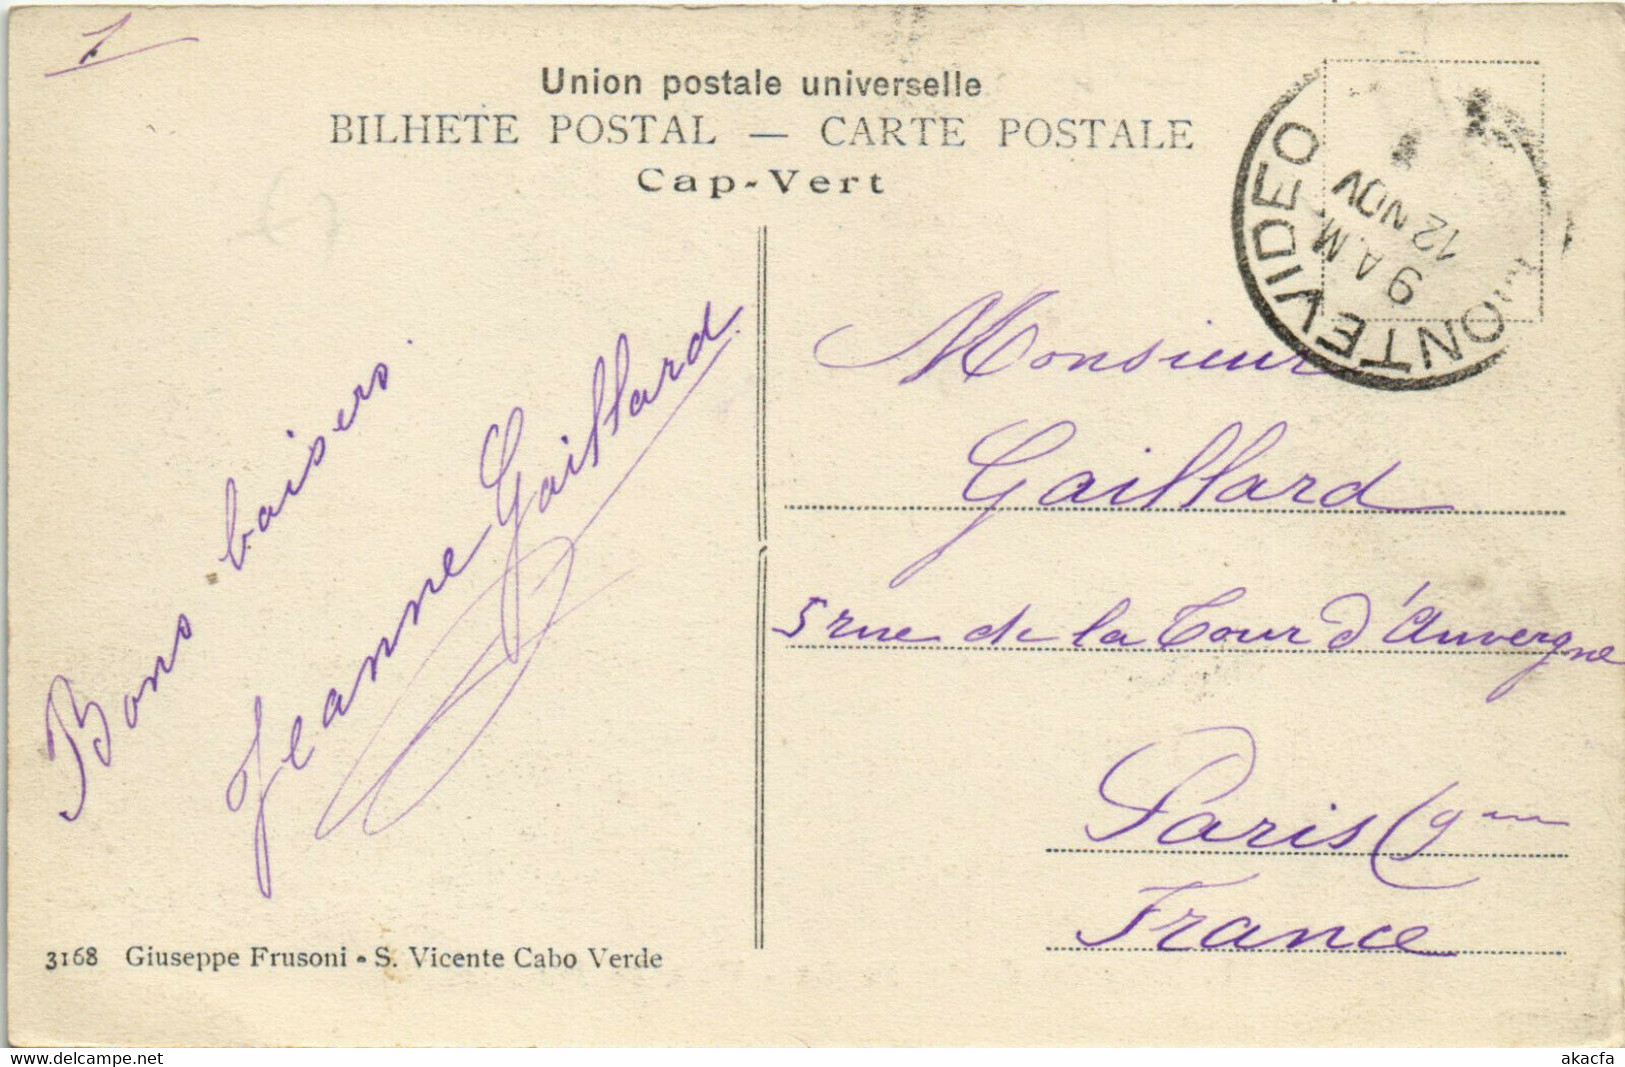 1
Union postale universelle
BILHETE POSTAL — CARTE POSTALE
Cap-Vert
MONTEVIDEO
9 A.M.
12 NOV
Bons baisers.
Jeanne Gaillard
Monsieur
Gaillard
5 rue de la Tour d'Auvergne
Paris (9me
France
3168 Giuseppe Frusoni - S. Vicente Cabo Verde
delcampe.net
akacfa